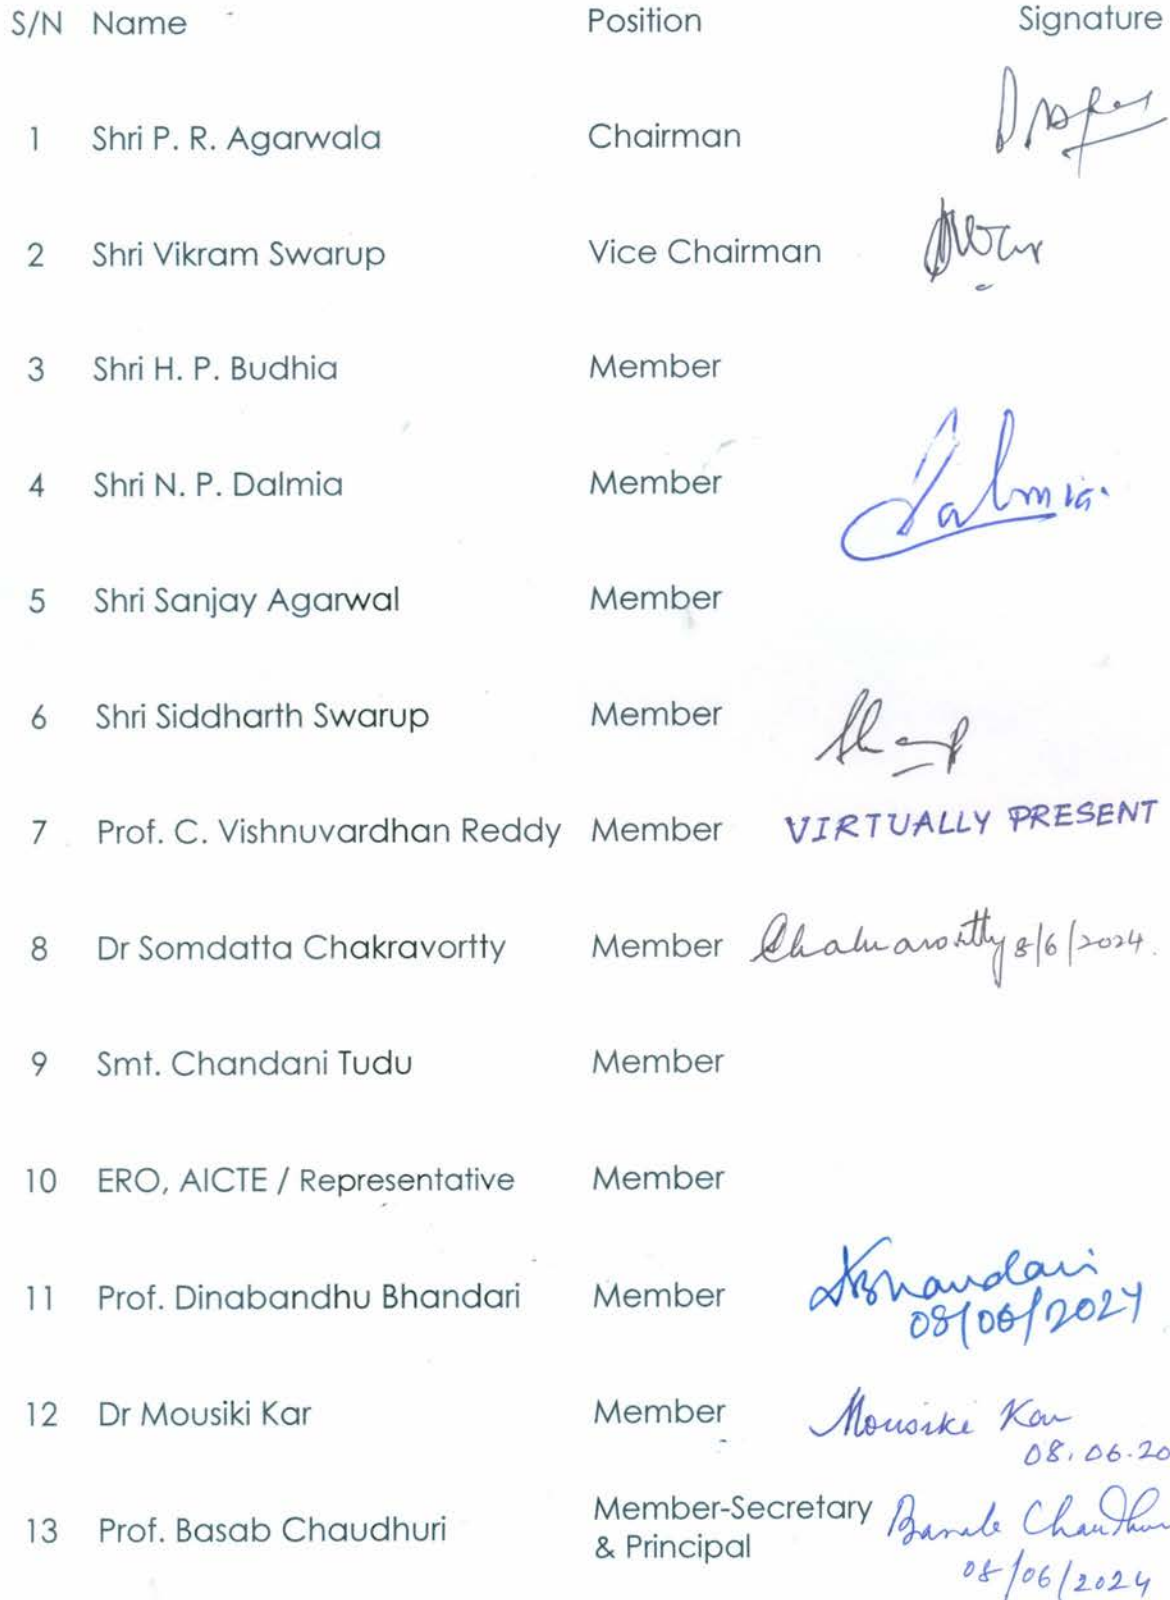 S/N Name Position Signature
1 Shri P. R. Agarwala Chairman
2 Shri Vikram Swarup Vice Chairman
3 Shri H. P. Budhia Member
4 Shri N. P. Dalmia Member Dalmia.
5 Shri Sanjay Agarwal Member
6 Shri Siddharth Swarup Member
7 Prof. C. Vishnuvardhan Reddy Member VIRTUALLY PRESENT
8 Dr Somdatta Chakravortty Member Chakravortty 8/6/2024.
9 Smt. Chandani Tudu Member
10 ERO, AICTE / Representative Member
11 Prof. Dinabandhu Bhandari Member DBhandari
08/06/2024
12 Dr Mousiki Kar Member Mousiki Kar
08.06.20
13 Prof. Basab Chaudhuri Member-Secretary
& Principal Basab Chaudhuri
08/06/2024